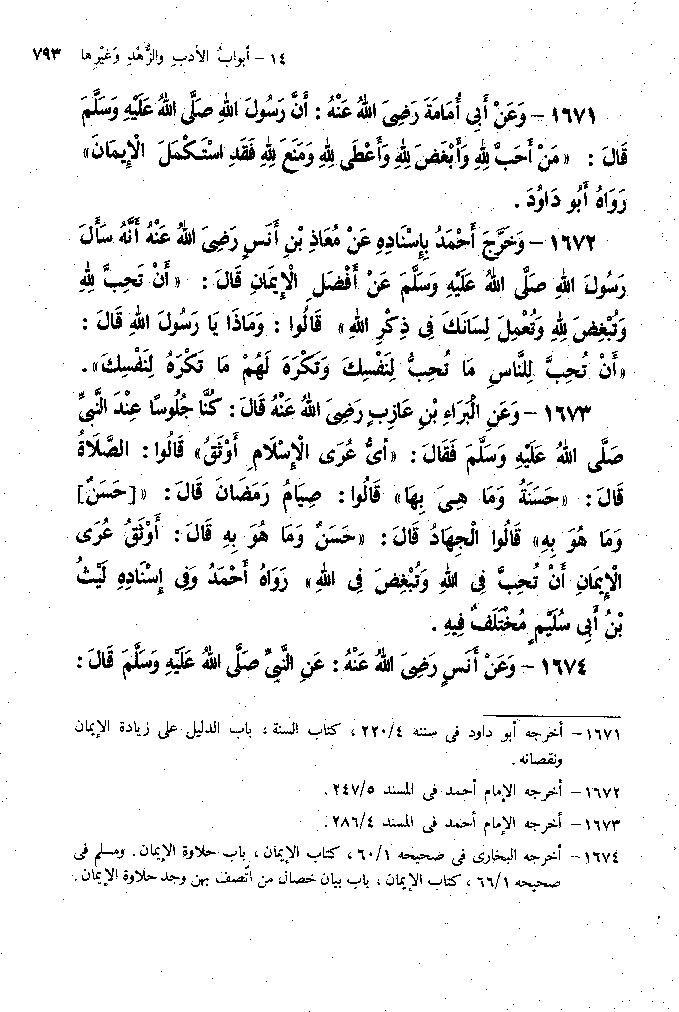 ١٤ - أبوابُ الأدبِ والزُّهْدِ وَغَيْرِها ٧٩٣
١٦٧١ - وَعَنْ أَبِى أُمَامَةَ رَضِىَ اللهُ عَنْهُ : أَنَّ رَسُولَ اللهِ صَلَّى اللهُ عَلَيْهِ وَسَلَّمَ
قَالَ : «مَنْ أَحَبَّ لِلهِ وَأَبْغَضَ لِلهِ وَأَعْطَى لِلهِ وَمَنَعَ لِلهِ فَقَدِ اسْتَكْمَلَ الْإِيمَانَ»
رَوَاهُ أَبُو دَاوُدَ .
١٦٧٢ - وَخَرَّجَ أَحْمَدُ بِإِسْنَادِهِ عَنْ مُعَاذِ بْنِ أَنَسٍ رَضِىَ اللهُ عَنْهُ أَنَّهُ سَأَلَ
رَسُولَ اللهِ صَلَّى اللهُ عَلَيْهِ وَسَلَّمَ عَنْ أَفْضَلِ الْإِيمَانِ قَالَ : «أَنْ تُحِبَّ لِلهِ
وَتُبْغِضَ لِلهِ وَتُعْمِلَ لِسَانَكَ فِى ذِكْرِ اللهِ» قَالُوا : وَمَاذَا يَا رَسُولَ اللهِ قَالَ :
«أَنْ تُحِبَّ لِلنَّاسِ مَا تُحِبُّ لِنَفْسِكَ وَتَكْرَهَ لَهُمْ مَا تَكْرَهُ لِنَفْسِكَ».
١٦٧٣ - وَعَنِ الْبَرَاءِ بْنِ عَازِبٍ رَضِىَ اللهُ عَنْهُ قَالَ : كُنَّا جُلُوسًا عِنْدَ النَّبِىِّ
صَلَّى اللهُ عَلَيْهِ وَسَلَّمَ فَقَالَ : «أَىُّ عُرَى الْإِسْلَامِ أَوْثَقُ» قَالُوا : الصَّلَاةُ
قَالَ : «حَسَنَةٌ وَمَا هِىَ بِهَا» قَالُوا : صِيَامُ رَمَضَانَ قَالَ : «[حَسَنٌ]
وَمَا هُوَ بِهِ» قَالُوا الْجِهَادُ قَالَ : «حَسَنٌ وَمَا هُوَ بِهِ قَالَ : أَوْثَقُ عُرَى
الْإِيمَانِ أَنْ تُحِبَّ فِى اللهِ وَتُبْغِضَ فِى اللهِ» رَوَاهُ أَحْمَدُ وَفِى إِسْنَادِهِ لَيْثُ
بْنُ أَبِى سُلَيْمٍ مُخْتَلَفٌ فِيهِ .
١٦٧٤ - وَعَنْ أَنَسٍ رَضِىَ اللهُ عَنْهُ : عَنِ النَّبِىِّ صَلَّى اللهُ عَلَيْهِ وَسَلَّمَ قَالَ :
١٦٧١ - أخرجه أبو داود فى سننه ٢٢٠/٤ ، كتاب السنة ، باب الدليل على زيادة الإيمان
ونقصانه .
١٦٧٢ - أخرجه الإمام أحمد فى المسند ٢٤٧/٥ .
١٦٧٣ - أخرجه الإمام أحمد فى المسند ٢٨٦/٤ .
١٦٧٤ - أخرجه البخارى فى صحيحه ٦٠/١ ، كتاب الإيمان ، باب حلاوة الإيمان . ومسلم فى
صحيحه ٦٦/١ ، كتاب الإيمان ، باب بيان خصال من اتّصف بهن وجد حلاوة الإيمان .